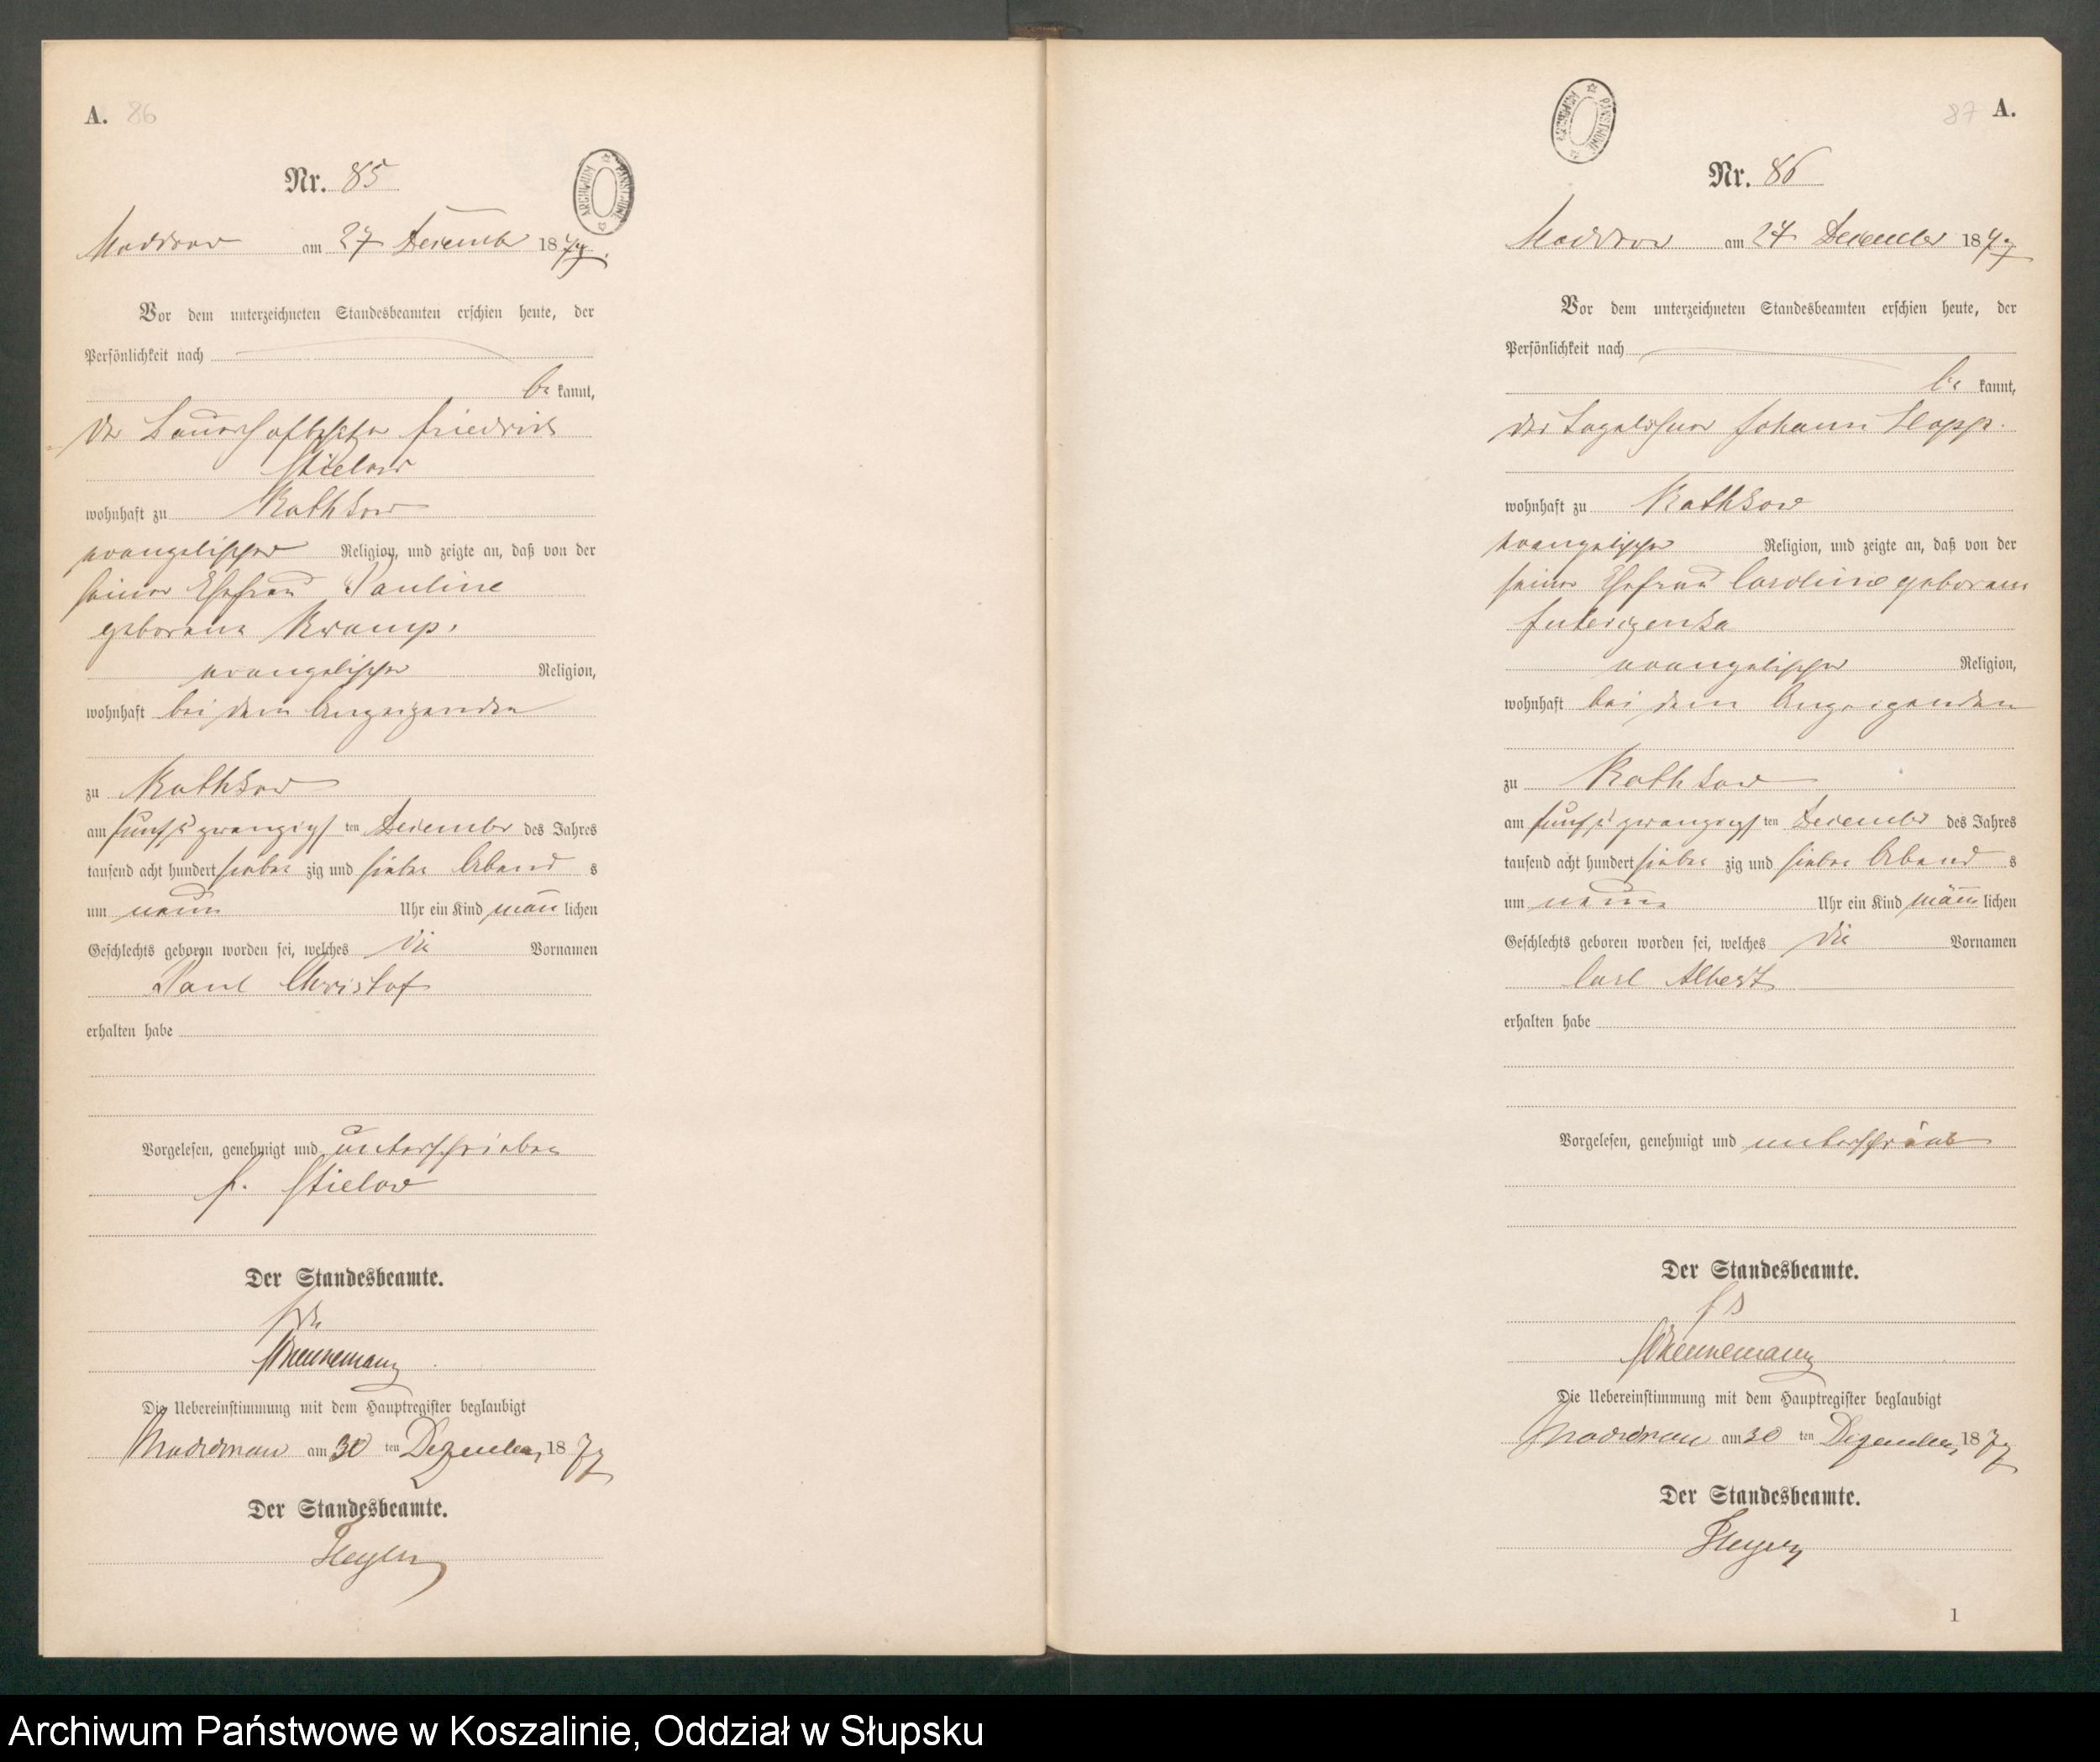 A. 86
Nr. 85
ARCHIWUM PAŃSTWOWE
Moddrow am 27 Dezember 1877.
Vor dem unterzeichneten Standesbeamten erschien heute, der
Persönlichkeit nach
be kannt,
der Bauerhofbesitzer Friedrich
Stielow
wohnhaft zu Kathkow
evangelischer Religion, und zeigte an, daß von der
seiner Ehefrau Pauline
geborene Kramp.
evangelischer Religion,
wohnhaft bei dem Anzeigenden
zu Kathkow
am fünf u zwanzigs ten Dezember des Jahres
tausend acht hundert sieben zig und sieben Abend s
um neun Uhr ein Kind männ lichen
Geschlechts geboren worden sei, welches die Vornamen
Paul Christof
erhalten habe
Vorgelesen, genehmigt und unterschrieben
F. Stielow
Der Standesbeamte.
Die Uebereinstimmung mit dem Hauptregister beglaubigt
Moddrow am 30 ten Dezember 1877
Der Standesbeamte.
87 A.
ARCHIWUM PAŃSTWOWE
Nr. 86
Moddrow am 27 December 1877
Vor dem unterzeichneten Standesbeamten erschien heute, der
Persönlichkeit nach
be kannt,
der Tagelöhner Johann Hopp.
wohnhaft zu Kathkow
evangelischer Religion, und zeigte an, daß von der
seiner Ehefrau Caroline geborene
evangelischer Religion,
wohnhaft bei dem Anzeigenden
zu Kathkow
am fünf u zwanzigs ten Dezember des Jahres
tausend acht hundert sieben zig und sieben Abend s
um neun Uhr ein Kind männ lichen
Geschlechts geboren worden sei, welches die Vornamen
Carl Albert
erhalten habe
Vorgelesen, genehmigt und
Der Standesbeamte.
Die Uebereinstimmung mit dem Hauptregister beglaubigt
Moddrow am 30 ten Dezember 1877
Der Standesbeamte.
1
Archiwum Państwowe w Koszalinie, Oddział w Słupsku